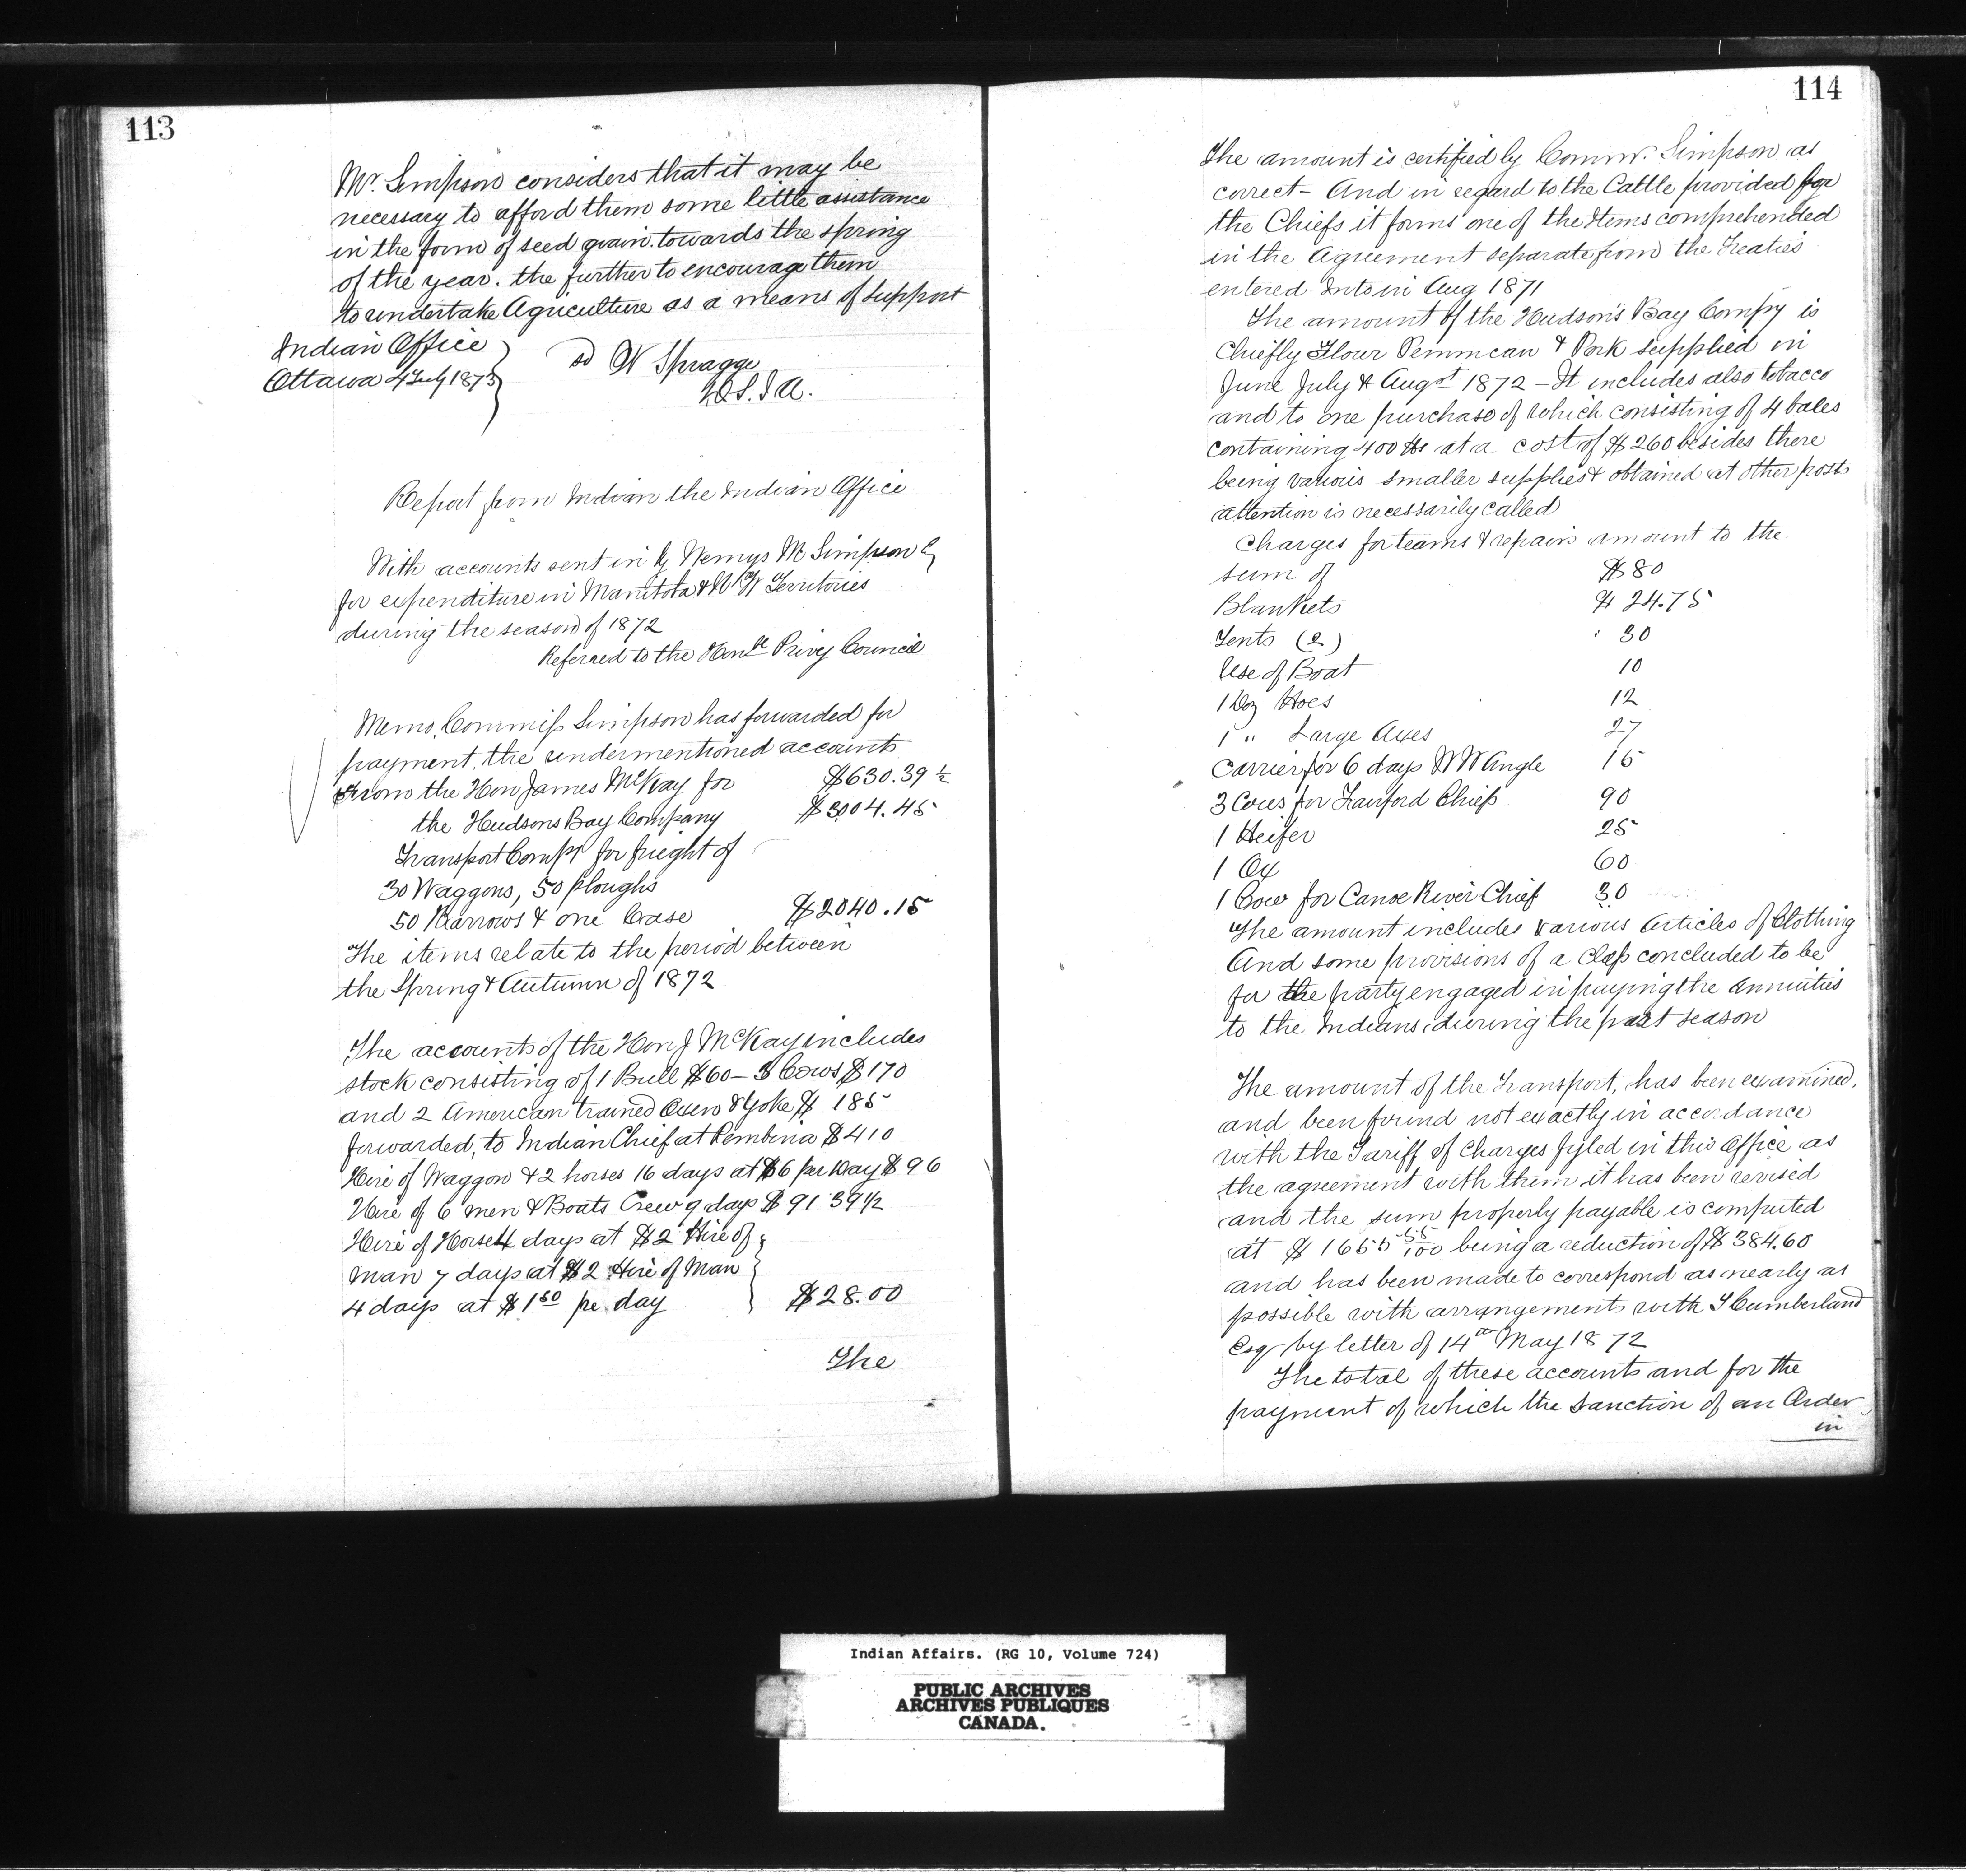 113
Mr. Simpson considers that it may be
necessary to afford them some little assistance
in the form of seed grain. towards the spring
of the year. the further to encourage them
to undertake Agriculture as a means of support
Indian Office
Ottawa 4 July 1873
sd W Spragge
D.S.I.A.
Report from Indian the Indian Office
With accounts sent in by Wemyss M Simpson E
for expenditure in Manitoba & N W Territories
during the season of 1872
Referred to the Honble Privy Council
Memo, Commiss Simpson has forwarded for
payment, the undermentioned accounts
From the Hon James McKay for $630.39 ½
the Hudsons Bay Company $3004.45
Transport Compy for frieght of
30 Waggons, 50 ploughs
50 Harrows & one Case $2040.15
The items relate to the period between
the Spring & Autumn of 1872
The accounts of the Hon J McKay includes
stock consisting of 1 Bull $60 – 3 Cows $170
and 2 American trained Oxen & Yoke $ 185
forwarded, to Indian Chief at Pembina $410
Hire of Waggon & 2 horses 16 days at $6 per Day $96
Hire of 6 men & Boats Crew 9 days $91 39 1/2
Hire of Horse 4 days at $2 Hire of
Man 7 days at $2 Hire of Man
4 days at $1 50 pe day $28.00
The
114
The amount is certified by Commr. Simpson as
correct – And in regard to the Cattle provided for
the Chiefs it forms one of the Items comprehended
in the Agreement separate from the Treaties
entered Into in Aug 1871
The amount of the Hudson's Bay Compy is
Chiefly Flour Pemmican & Pork supplied in
June July & Augst 1872 – It includes also tobacco
and to one purchase of which consisting of 4 bales
containing 400 lbs at a cost of $260 besides there
being various smaller supplies & obtained at other posts
attention is necessarily called
Charges for teams & repairs amount to the
sum of $80
Blankets $24.75
Tents (2) 30
Use of Boat 10
1 Doz Hoes 12
1 " Large Axes 27
Carrier for 6 days N W Angle 15
3 Cows for Chiefs 90
1 Heifer 25
1 Ox 60
1 Cow for Canoe River Chief 30
The amount includes various Articles of Clothing
And some provisions of a class concluded to be
for the party engaged in paying the annuities
to the Indians, during the past season
The amount of the Transport, has been examined.
and been found not exactly in accordance
with the Tariff of Charges fyled in this Office as
the agreement with them it has been revised
and the sum properly payable is computed
at $ 1655 55/100 being a reduction of $384.60
and has been made to correspond as nearly as
possible with arrangement with Cumberland
Esq by letter of 14th May 1872
The total of these accounts and for the
payment of which the sanction of an Order
in
Indian Affairs. (RG 10, Volume 724)
PUBLIC ARCHIVES
ARCHIVES PUBLIQUES
CANADA.